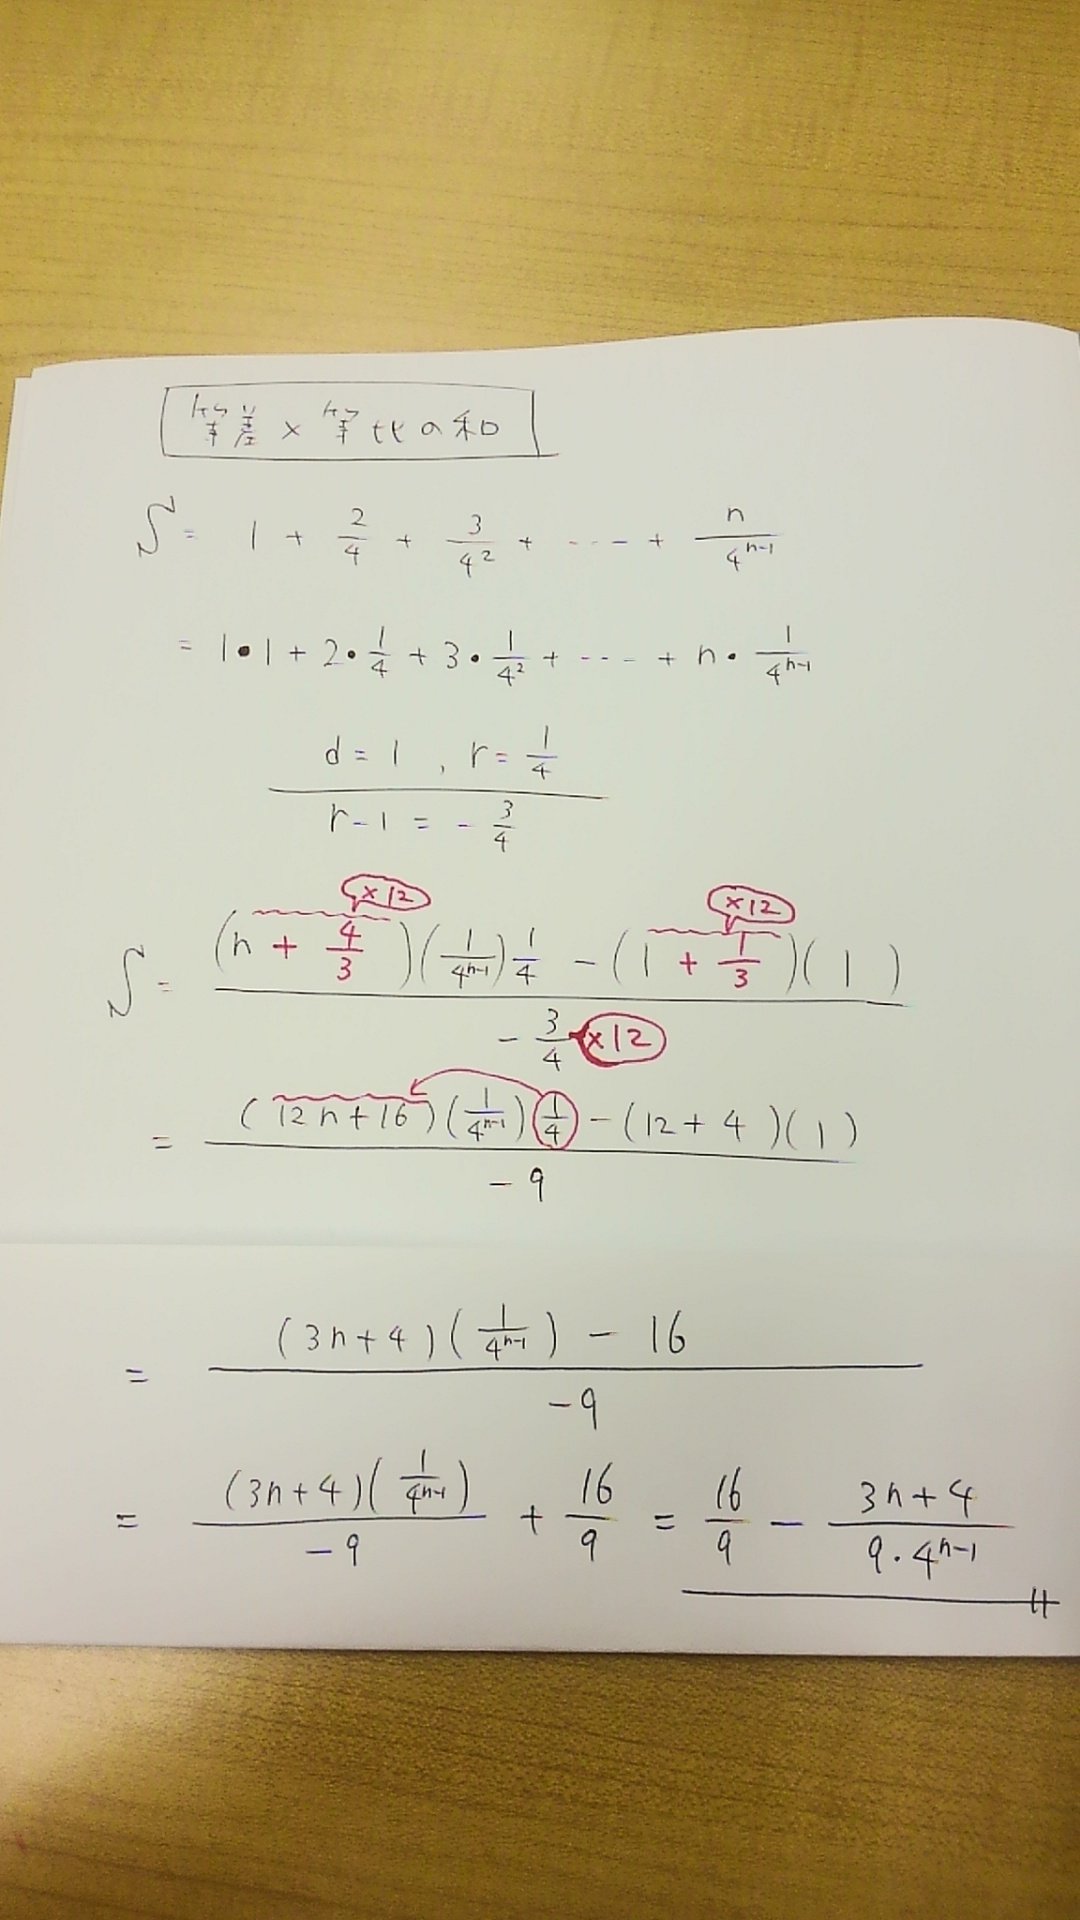 等差×等比の和
S = 1 + 2/4 + 3/4² + ---- + n/4ⁿ⁻¹
= 1・1 + 2・1/4 + 3・1/4² + ---- + n・1/4ⁿ⁻¹
d = 1 , r = 1/4
r-1 = -3/4
×12 ×12
S = (n + 4/3)(1/4ⁿ⁻¹)1/4 - (1 + 1/3)(1)
-3/4 ×12
= (12n+16)(1/4ⁿ⁻¹)(1/4) - (12+4)(1)
-9
= (3n+4)(1/4ⁿ⁻¹) - 16
-9
= (3n+4)(1/4ⁿ⁻¹)/-9 + 16/9 = 16/9 - 3n+4/9・4ⁿ⁻¹